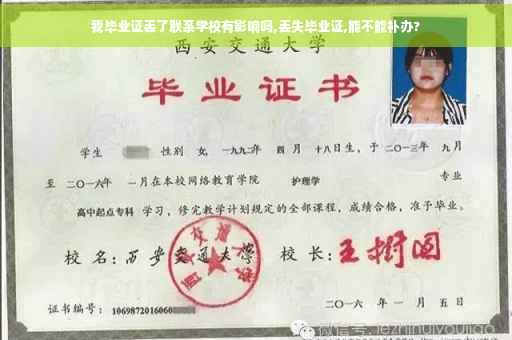 我毕业证丢了联系学校有影响吗,丢失毕业证,能不能补办?
西安交通大学
毕业证书
学生 性别 女, 一九九二年 四月 十八日生, 于 二〇一三年 九月
至 二〇一六年 一月在本校网络教育学院 护理学 专业
高中起点专科 学习, 修完教学计划规定的全部课程, 成绩合格, 准予毕业。
校名: 西安交通大学 校长: 王树国
证书编号: 1069872016060
二〇一六年 一月 五日
微信号: jezhihuiyoujiao